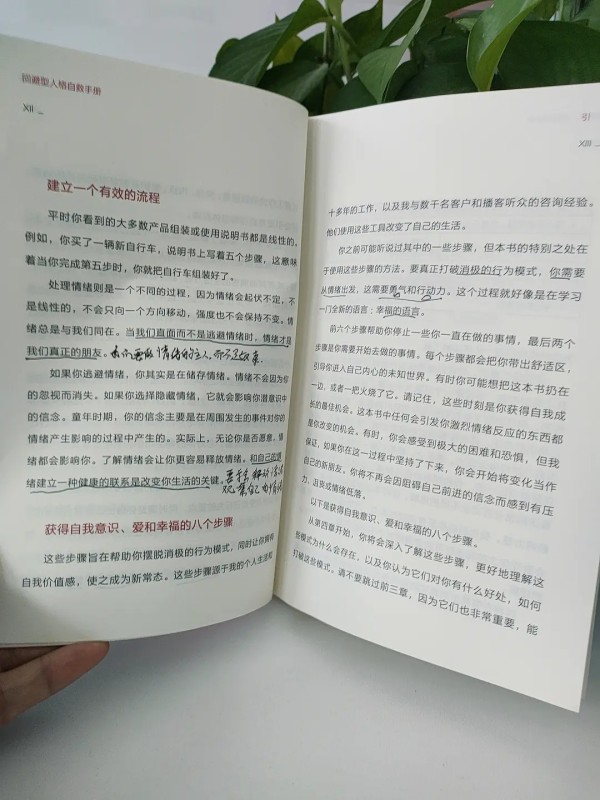 回避型人格自救手册
XII
建立一个有效的流程
平时你看到的大多数产品组装或使用说明书都是线性的。
例如，你买了一辆新自行车，说明书上写着五个步骤，这意味
着当你完成第五步时，你就把自行车组装好了。
处理情绪则是一个不同的过程，因为情绪会起伏不定，不
是线性的，不会只向一个方向移动，强度也不会保持不变。情
绪总是与我们同在。当我们直面而不是逃避情绪时，情绪才是
我们真正的朋友。
如果你逃避情绪，你其实是在储存情绪。情绪不会因为你
的忽视而消失。如果你选择隐藏情绪，它就会影响你潜意识中
的信念。童年时期，你的信念主要是在周围发生的事件对你的
情绪产生影响的过程中产生的。实际上，无论你是否愿意，情
绪都会影响你。了解情绪会让你更容易释放情绪。和自己的情
绪建立一种健康的联系是改变你生活的关键。
获得自我意识、爱和幸福的八个步骤
这些步骤旨在帮助你摆脱消极的行为模式，同时让你拥有
自我价值感，使之成为新常态。这些步骤源于我的个人生活和
引
XIII
十多年的工作，以及我与数千名客户和播客听众的咨询经验。
他们使用这些工具改变了自己的生活。
你之前可能听说过其中的一些步骤，但本书的特别之处在
于使用这些步骤的方法。要真正打破消极的行为模式，你需要
从情绪出发，这需要勇气和行动力。这个过程就好像是在学习
一门全新的语言：幸福的语言。
前六个步骤帮助你停止一些你一直在做的事情，最后两个
步骤是你需要开始去做的事情。每个步骤都会把你带出舒适区，
引导你进入自己内心的未知世界。有时你可能想把这本书扔在
一边，或者一把火烧了它。请记住，这些时刻是你获得自我成
长的最佳机会。这本书中任何会引发你激烈情绪反应的东西都
是你改变的机会。有时，你会感受到极大的困难和恐惧，但我
保证，如果你在这一过程中坚持了下来，你会开始将变化当作
自己的新朋友，你将不再会因阻碍自己前进的信念而感到有压
力、沮丧或情绪低落。
以下是获得自我意识、爱和幸福的八个步骤。
从第四章开始，你将会深入了解这些步骤，更好地理解这
些模式为什么会存在，以及你认为它们对你有什么好处，如何
打破这些模式。请不要跳过前三章，因为它们也非常重要，能